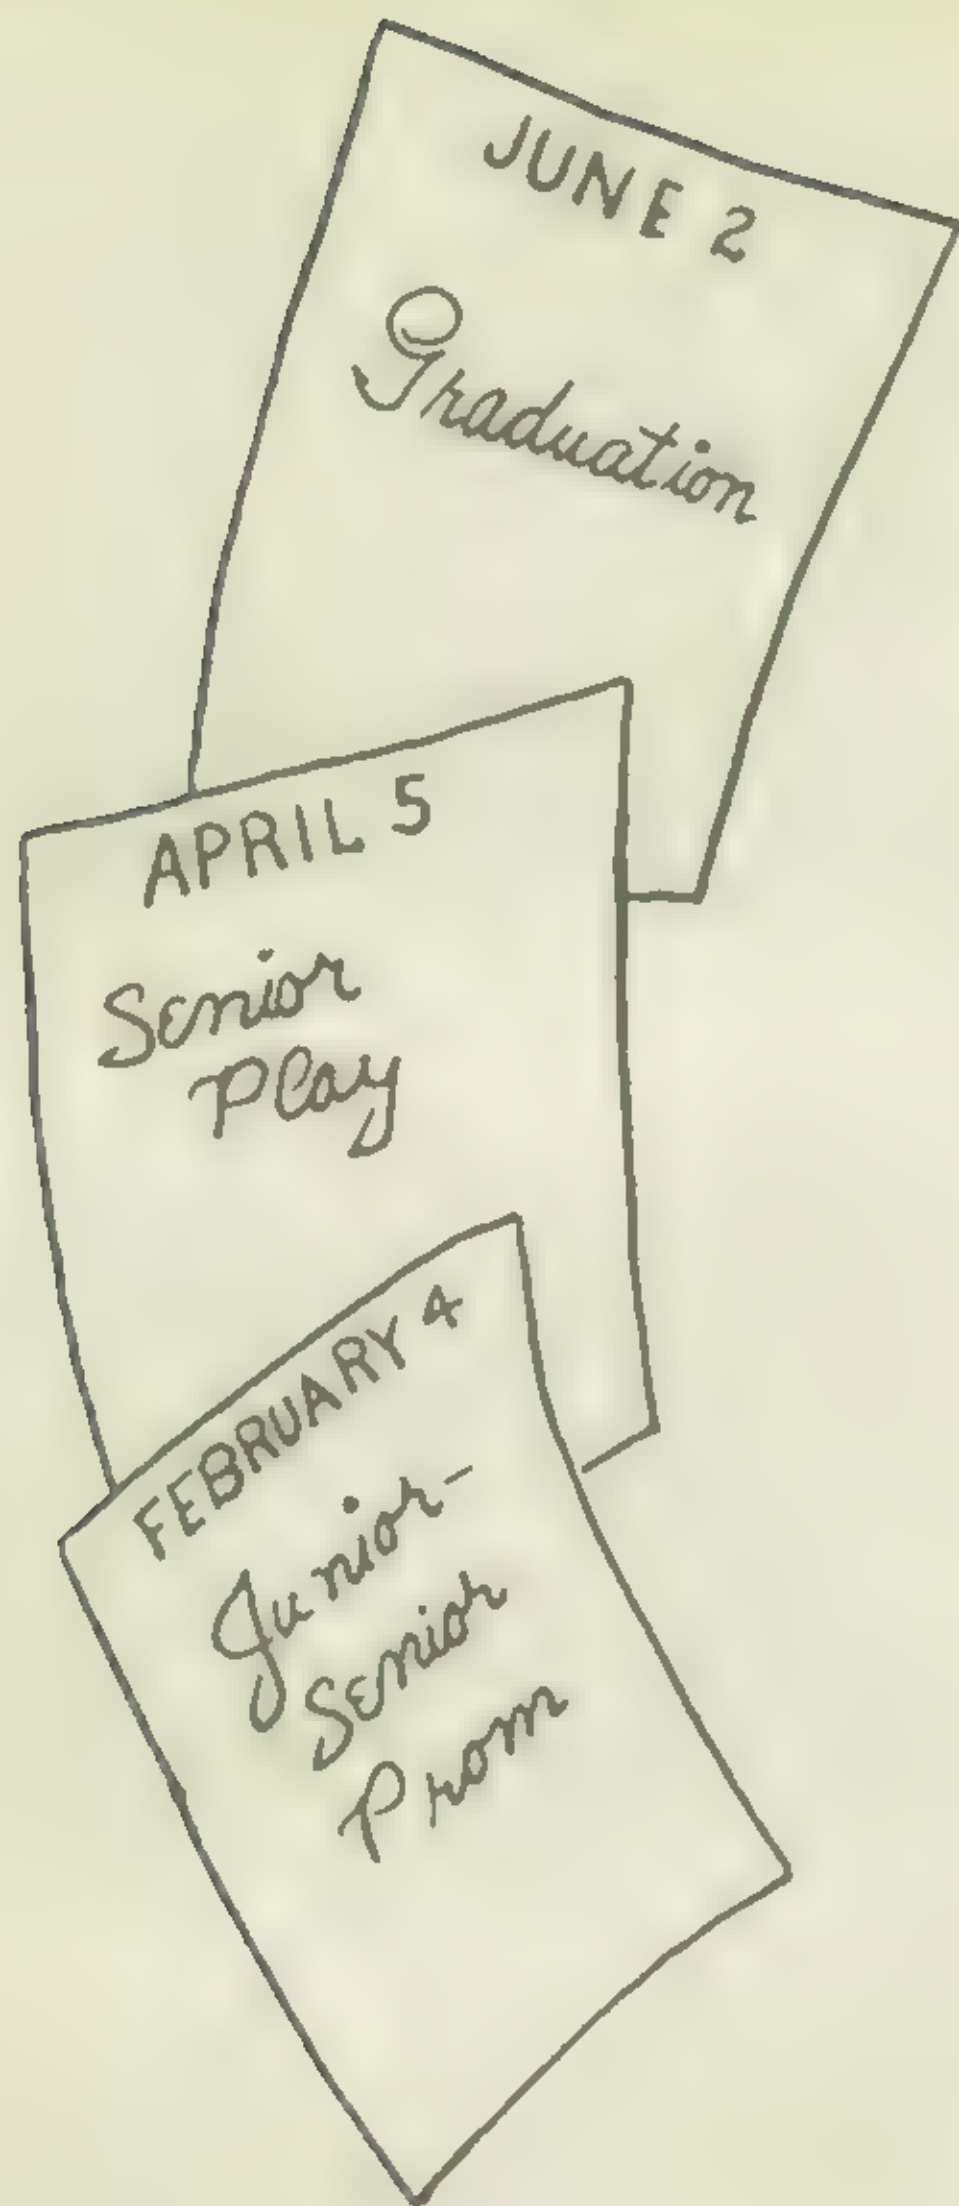 JUNE 2
Graduation
APRIL 5
Senior
Play
FEBRUARY 4
Junior-
Senior
Prom